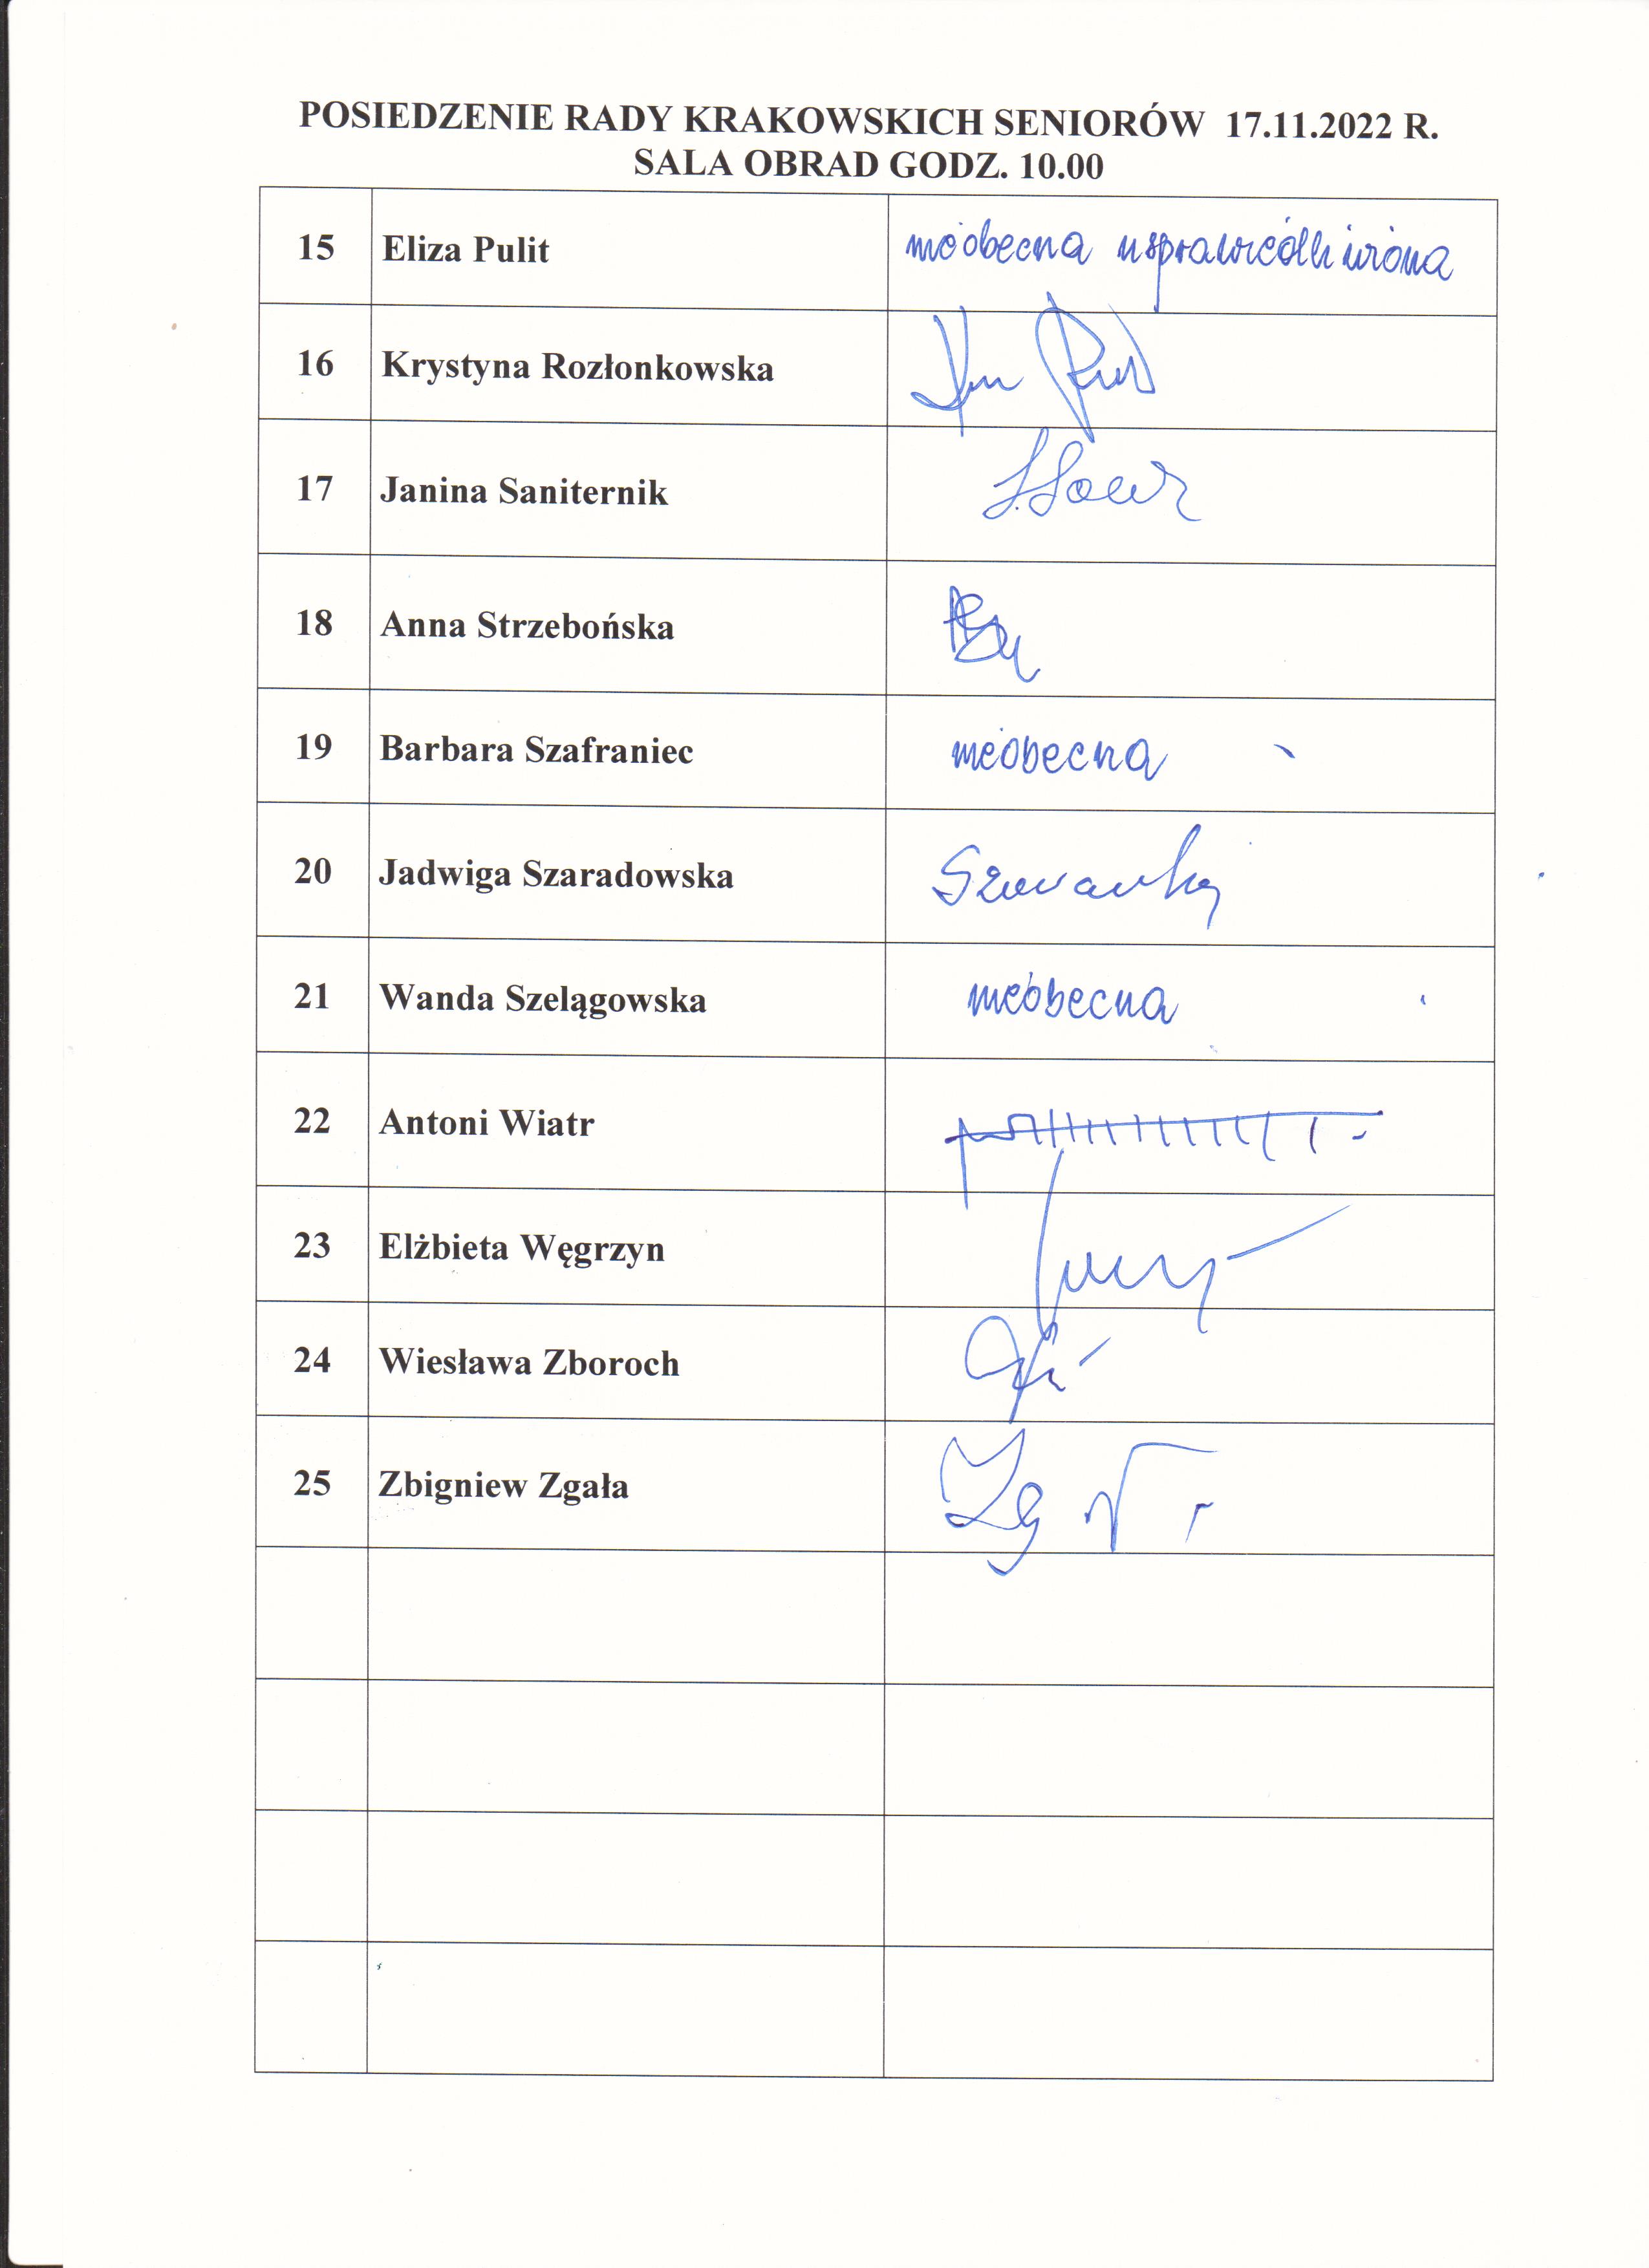 POSIEDZENIE RADY KRAKOWSKICH SENIORÓW 17.11.2022 R.
SALA OBRAD GODZ. 10.00
15 Eliza Pulit nieobecna usprawiedliwiona
16 Krystyna Rozłonkowska
17 Janina Saniternik
18 Anna Strzebońska
19 Barbara Szafraniec nieobecna
20 Jadwiga Szaradowska
21 Wanda Szelągowska nieobecna
22 Antoni Wiatr
23 Elżbieta Węgrzyn
24 Wiesława Zboroch
25 Zbigniew Zgała